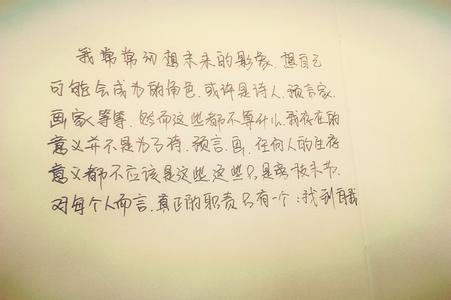 我常常幻想未来的影象,想自己
可能会成为的角色,或许是诗人,预言家,
画家等等,然而这些都不算什么,我存在的
意义并不是为了诗、预言、画,任何人的生存
意义都不应该是这些,这些只是旁枝末节.
对每个人而言,真正的职责只有一个:找到自我